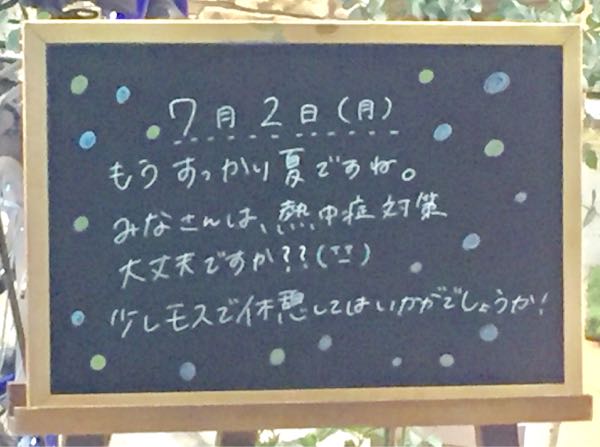 7月2日(月)
もうすっかり夏ですね。
みなさんは、熱中症対策
大丈夫ですか??(¨)
少しモスで休憩してはいかがでしょうか!